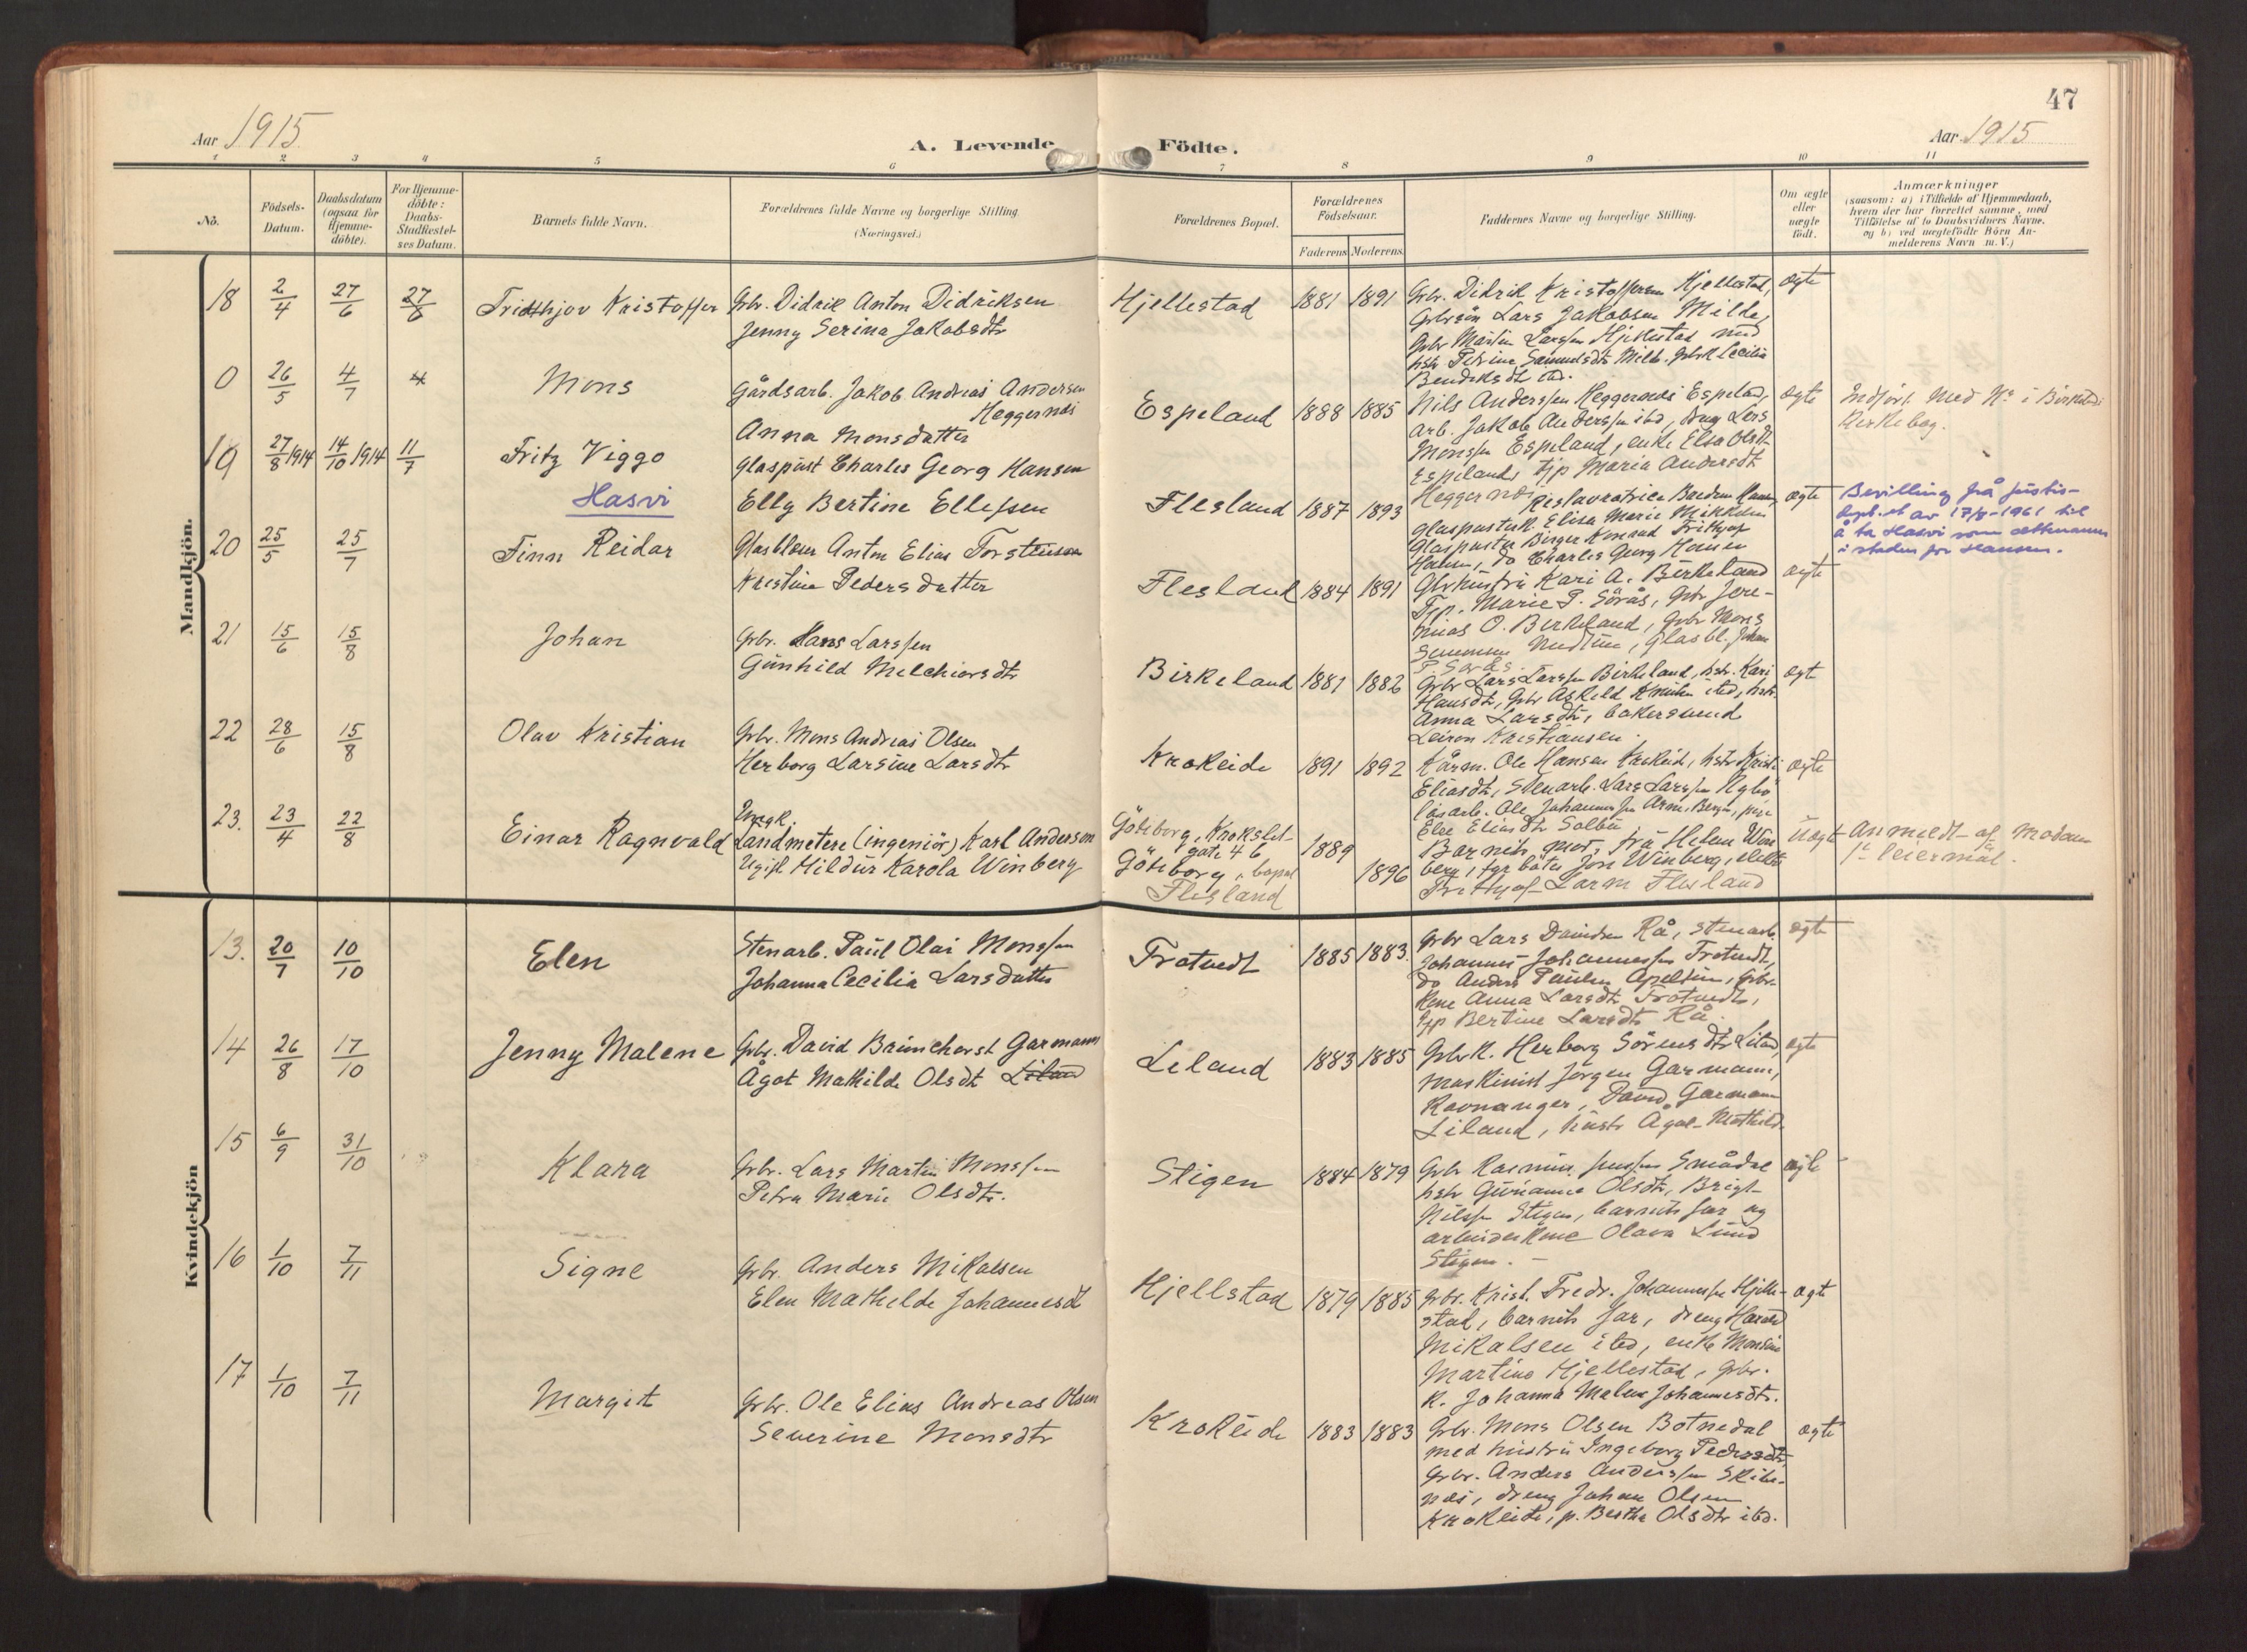 47
Aar 1915
A. Levende Födte.
Aar 1915
1 2 3 4 5 6 7 8 9 10 11
No.
Födsels-
Datum.
Daabsdatum
(ogsaa for
Hjemme-
döbte).
For Hjemme-
döbte:
Daabs-
Stadfestel-
ses Datum.
Barnets fulde Navn.
Forældrenes fulde Navne og borgerlige Stilling.
(Næringsvei.)
Forældrenes Bopæl.
Forældrenes
Födselsaar.
Faderens Moderens
Faddernes Navne og borgerlige Stilling.
Om ægte
eller
uægte
födt.
Anmærkninger
(saasom: a) i Tilfælde af Hjemmedaab,
hvem der har forrettet samme, med
Tilföielse af to Daabsvidners Navne,
og b) ved uægtefödte Börn An-
melderens Navn m. V.)
Mandkjön.
18 2/4 27/6 27/6 Fridthjov Kristoffer
Gbr. Didrik Anton Didriksen
Jenny Serina Jakobsdtr
Hjellestad 1881 1891
Gbr. Didrik Kristoffersen Hjellestad,
Gbrsön Lars Jakobsen Milde,
Gbr Martin Larssen Hjellestad med
hstr Petrine Samuelsdtr Milde. Gbrk Cecilia
Bendiksdtr
ægte
0 26/5 4/7 Mons
Gårdsarb. Jakob Andreas Andersen
Heggernes
Anna Monsdatter
Espeland 1888 1885
Nils Anderssen Heggernes Espeland,
arb. Jakob Anderssen ibd, dreng Lars
Monssen Espeland, enke Elsa Olsdtr
Espeland, tjp Maria Andersdtr
Heggernes
ægte
Indfört med No i Birkelands
Kirkebog.
19 27/8 1914 14/10 1914 11/7 Fritz Viggo
Hasvi
Glaspust Charles Georg Hansen
Elly Bertine Ellefsen
Flesland 1887 1893
Elisa Marie Mikkelsen
Glaspuster Birger Konrad Frithjof
Do Charles Georg Hansen
ægte
Bevilling frå Justis-
dept. et av 17/8-1961 til
å ta Hasvi som ættenamn
i staden for Hansen.
20 25/5 25/7 Finn Reidar
Glasblæser Anton Elias Torstensen
Kristine Pedersdatter
Flesland 1884 1891
Gbrhustru Kari A. Birkeland
Tjp. Marie P. Sörås, Gbr Jere-
mias O. Birkeland, Gbr Mons
Glasbl. Johan
P. Sörås.
ægte
21 15/6 15/8 Johan
Gbr. Hans Larssen
Gunhild Melchiorsdtr
Birkeland 1881 1882
Gbr Lars Larssen Birkeland, hstr. Kari
Hansdtr, Gbr Askild ibd, hstr
Anna Larsdtr, bakersvend
Kristiansen.
ægt
22 28/6 15/8 Olav Kristian
Gbr. Mons Andreas Olsen
Herborg Larsine Larsdtr
Krokeide 1891 1892
Kårm. Ole Hansen Krokeid, hstr Kristi
Eliasdtr, Stenarb. Lars Larssen
Ole Johannessen Bergen, pige
Else Eliasdtr
ægte
23. 23/4 22/8 Einar Ragnvald
Ungk.
Landmetere (ingeniör) Karl Anderson
Ugift Hildur Karola Winberg
Göteborg, Krokslet-
gate 46
Göteborg, bopæl
Flesland
1889 1896
Barnets mor, fru Helene Win-
berg, Jon Winberg,
Frithjof Larm Flesland
Uægte
Anmeldt af Madam
Leiermål.
Kvindekjön
13. 20/7 10/10 Elen
Stenarb. Paul Olai Monssen
Johanna Cecilia Larsdatter
Frotvedt 1885 1883
Gbr Lars Davidsen Rå, stenarb
Johannes Johannessen Frotvedt,
do Anders Paulsen Apeltun, Gbr.
Kone Anna Larsdtr Frotvedt,
tjp Bertine Larsdtr Rå.
ægte
14 26/8 17/10 Jenny Malene
Gbr. David Brunchorst Garmann
Ågot Mathilde Olsdtr Liland
Leland 1883 1885
GbrK. Herborg Sörensdtr Liland,
Maskinist Jörgen Garmann,
Ravnanger, David Garmann
Liland, hustr Ågot Mathilde.
ægte
15 6/9 31/10 Klara
Gbr. Lars Martin Monssen
Petra Marie Olsdtr.
Stigen 1884 1879
Gbr Rasmus Smådal
hstr Gurianna Olsdtr, Brigt
Nilssen Stigen, barnets far og
arbeiderkone Olava Lund
Stigen.
ægte
16 1/10 7/11 Signe
Gbr. Anders Mikalsen
Elen Mathilde Johannesdt
Hjellstad 1879 1885
Gbr. Krist. Fredr. Johannessen Hjelle-
stad, barnets far, dreng Harald
Mikalsen ibd, enke Monsine
Martine Hjellestad, Gbr.
K. Johanna Malene Johannesdtr.
ægt
17 1/10 7/11 Margit
Gbr. Ole Elias Andreas Olsen
Severine Monsdtr
Krokeide 1883 1883
Gbr. Mons Olsen Botnedal
med hustru Ingeborg Pedersdtr,
Gbr. Anders Anderssen Skibe-
næs, dreng Johan Olsen
Krokeide, p. Berthe Olsdtr ibd.
ægte